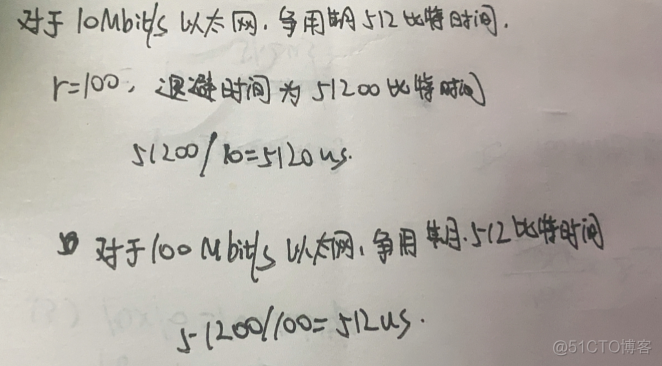 对于10Mbit/s以太网,争用期512比特时间.
r=100,退避时间为51200比特时间
51200/10=5120us.
对于100Mbit/s以太网,争用期.512比特时间
51200/100=512us.
@51CTO博客